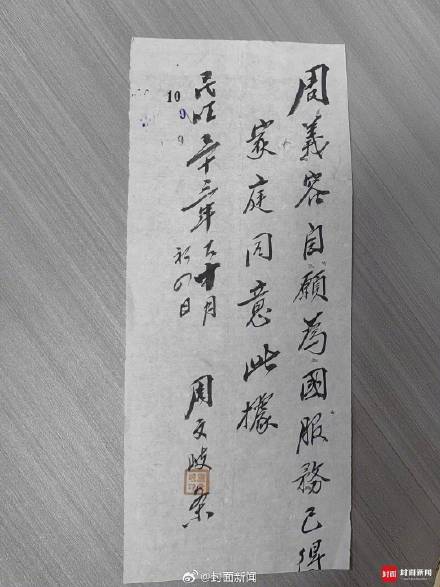 周義容自願為國服務已得
家庭同意此據
民国三十三年十月
初四日
周文歧条
10
9
9
封面 封面新闻
@封面新闻